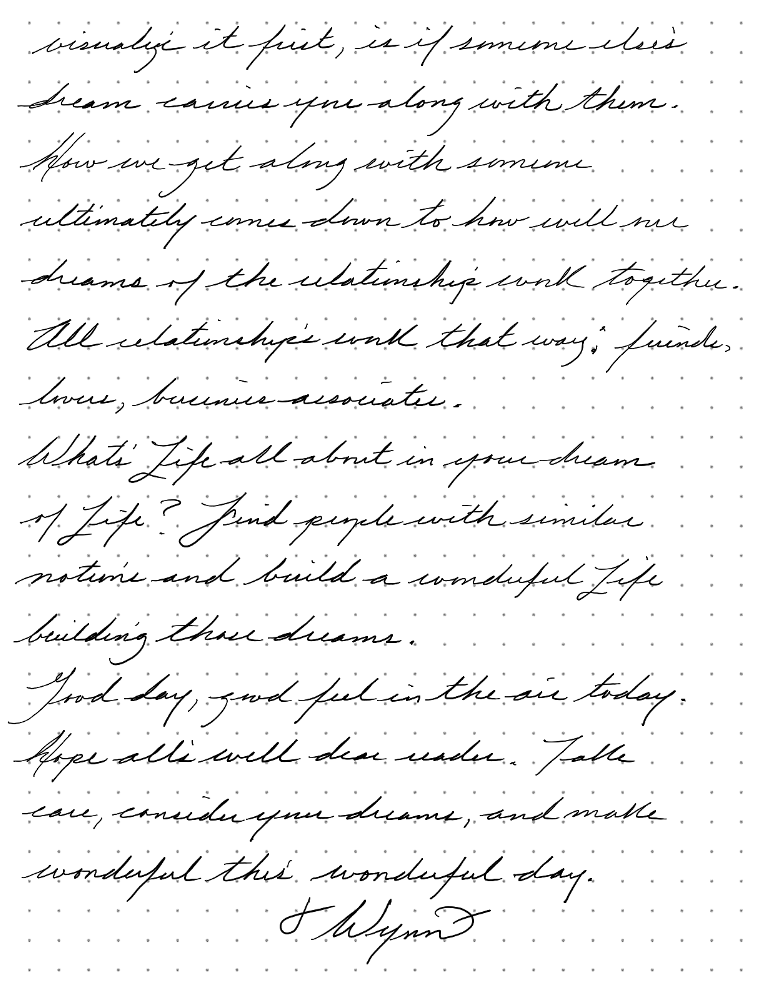 visualize it first, is if someone else's
dream carries you along with them.
How we get along with someone
ultimately comes down to how well our
dreams of the relationship work together.
All relationships work that way; friends,
lovers, business associates.
What's Life all about in your dream
of Life? Find people with similar
notions and build a wonderful Life
building those dreams.
Good day, good feel in the air today.
Hope all's well dear reader. Take
care, consider your dreams, and make
wonderful this wonderful day.
Wynn